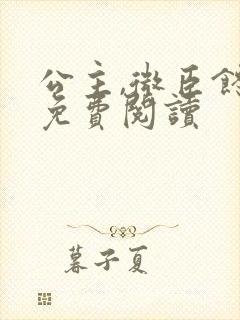 公主,微臣
免費閱讀
暮子夏